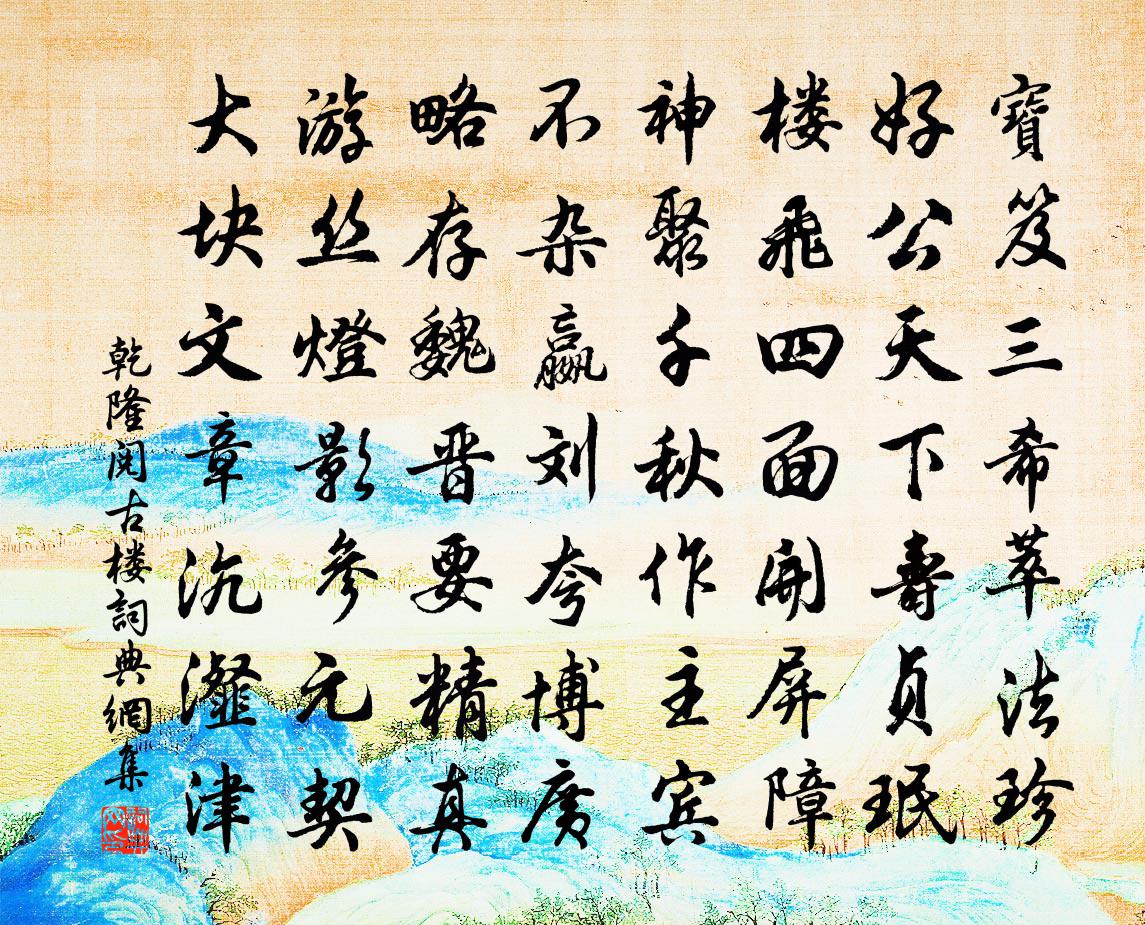 寶笈三希萃法珍
好公天下壽貞珉
楼飛四面開屏障
神聚千秋作主賓
不杂嬴刘夸博廣
略存魏晋要精真
游丝燈影參元契
大块文章沆瀣津
乾隆閱古楼詞典網集